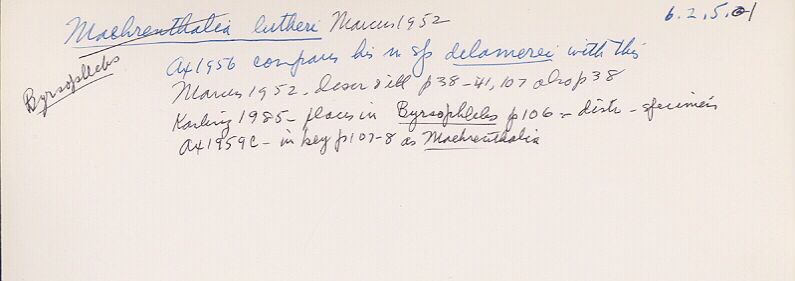 Maehrenthalia lutheri Marcus 1952
6.2.5.01
Byrsophlebs
Ax 1956 compares his n sp delamarei with this
Marcus 1952 - descr & ill p38-41, 107 also p38
Karling 1985 - places in Byrsophlebs p106 - distr - specimens
Ax 1959C - in key p107-8 as Maehrenthalia